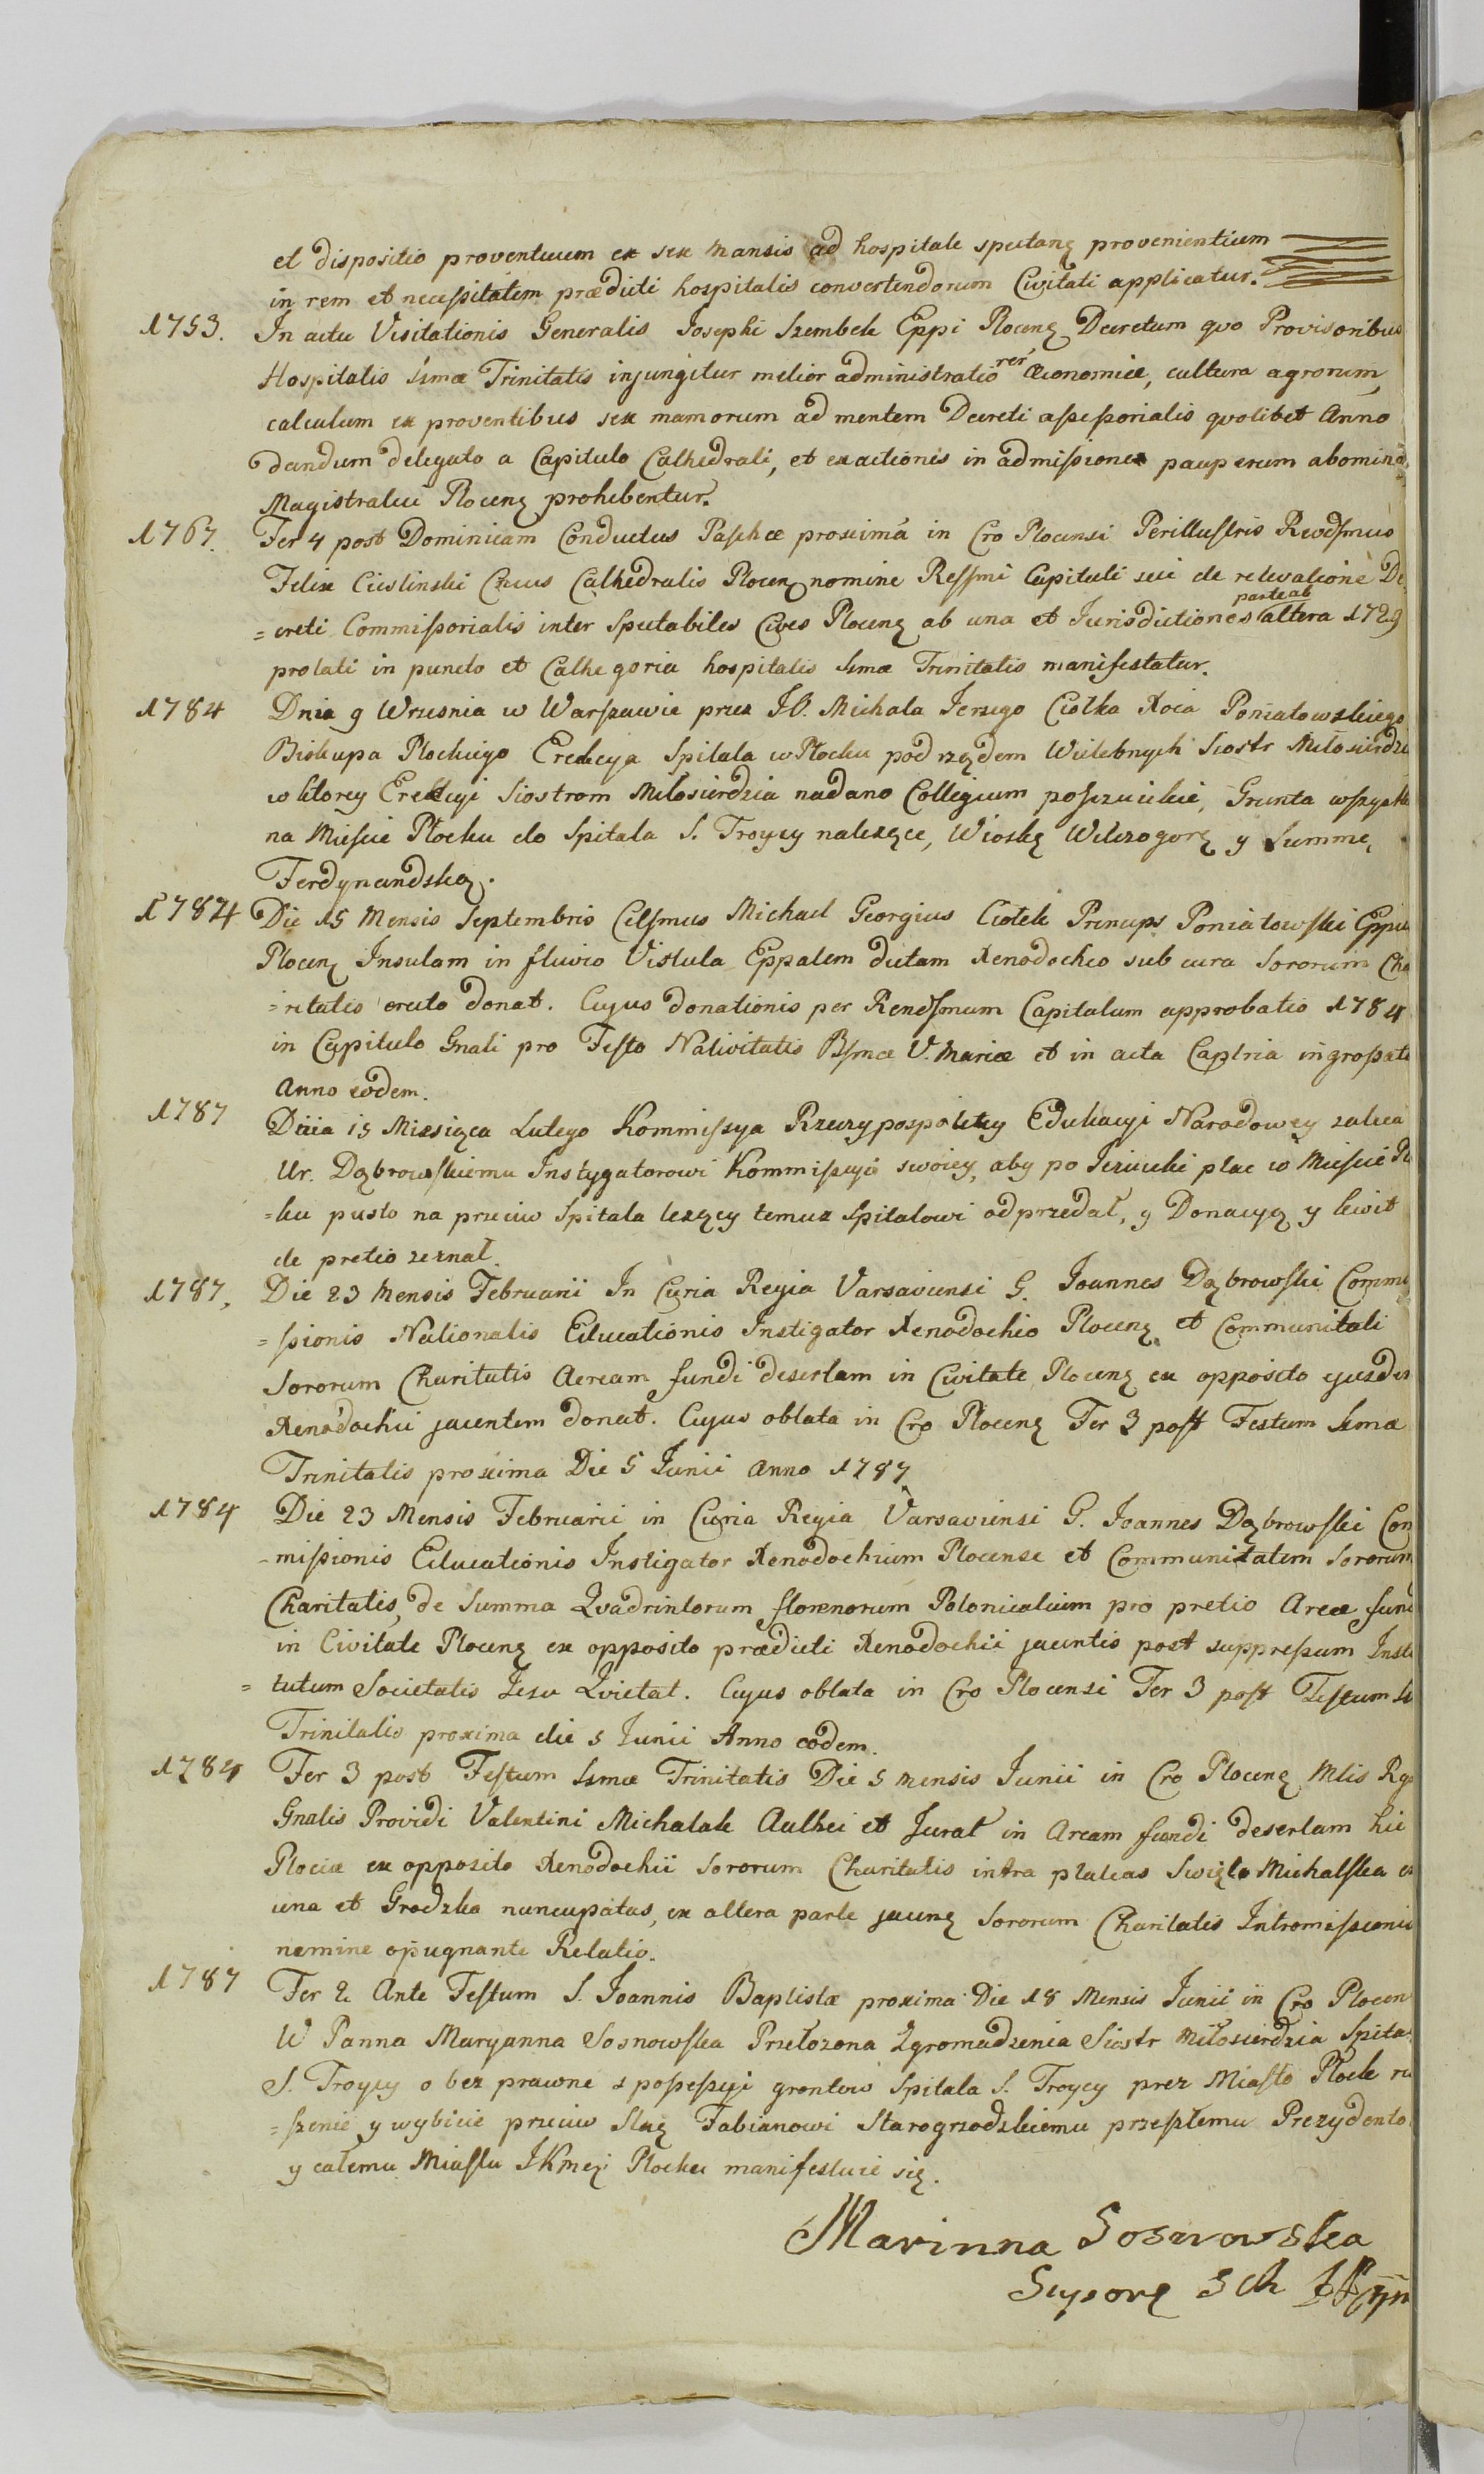 et dispositio proventuum ex sex mansis ad hospitale spectanę provenientium
in rem et necessitatem prædicti hospitalis convertendorum Civitati applicatur.
1753. In actu Visitationis Generalis Josephi Szembek Eppi Plocenę Decretum qvo Provisoribus
Hospitalis Ssmæ Trinitatis injungitur melior administratio rei œconomicæ, cultura agrorum,
calculum ex proventibus sex mansorum ad mentem Decreti assessorialis qvolibet Anno
dandum delegato a Capitulo Cathedrali, et exactiones in admissiones pauperum
Magistratui Plocenę prohibentur.
1767. Fer 4 post Dominicam Conductus Paschæ proxima in Cro Plocensi Perillustris Revdsmus
Felix Cieslinski Cnus Cathedralis Plocenę nomine Ressmi Capituli sui de relevatione De
=creti Commissorialis inter Spectabiles Cives Plocenę ab una et Jurisdictiones parte ab altera 1729
prolati in puncto et Cathegoria hospitalis Ssmæ Trinitatis manifestatur.
1784 Dnia 9 Wrzesnia w Warszawie przez JO. Michala Jerzego Ciołka Xcia Poniatowskiego
Biskupa Plockiego Erekcya Spitala w Płocku pod rządem Wielebnych Siostr Miłosierdzi
w ktorey Erekcyi Siostrom Miłosierdzia nadano Collegium pojezuickie, Grunta wszystk
na Miescie Płocku do Spitala S. Troycy nalezące, Wioskę Wilczogorę y Summę
Ferdynandską.
1784 Die 15 Mensis Septembris Celsmus Michael Georgius Ciołek Princeps Poniatowski Eppu
Plocenę Insulam in fluvio Vistula Eppalem dictam Xenodocheo sub cura Sororum Cha
=ritatis erecto donat. Cujus donationis per Rendsmum Capitulum approbatio 1784
in Capitulo Gnali pro Festo Nativitatis Bsmæ V. Mariæ et in acta Captria ingrossata
Anno eodem.
1787 Dnia 15 Miesiąca Lutego Kommissya Rzeczypospolitey Edukacyi Narodowey zaleca
Ur. Dąbrowskiemu Instygatorowi Kommissyi swoiey, aby po Jezuicki plac w Miescie Pło
=ku pusto na przeciw Spitala lezący temuz Spitalowi odprzedał, y Donacyą y kwit
de pretio zeznał.
1787, Die 23 Mensis Februarii In Curia Regia Varsaviensi G. Joannes Dąbrowski Commi
=ssionis Nationalis Educationis Instigator Xenodochio Plocenę et Communitati
Sororum Charitatis Aeream fundi desertam in Civitate Plocenę ex opposito ejusdem
Xenodochii jacentem donat. Cujus oblata in Cro Plocenę Fer 3 post Festum Ssmæ
Trinitatis proxima Die 5 Junii Anno 1787
1784 Die 23 Mensis Februarii in Curia Regia Varsaviensi G. Joannes Dąbrowski Com
-missionis Educationis Instigator Xenodochium Plocense et Communitatem Sororum
Charitatis, de Summa Qvadrintorum florenorum Polonicalium pro pretio Areæ fundi
in Civitate Plocenę ex opposito prædicti Xenodochii jacentis post suppressum Insti
=tutum Societatis Jesu Qvietat. Cujus oblata in Cro Plocensi Fer 3 post Festum Ss
Trinitatis proxima die 5 Junii Anno eodem.
1784 Fer 3 post Festum Ssmæ Trinitatis Die 5 mensis Junii in Cro Plocenę Mlis Rg
Gnalis Providi Valentini Michalak Authei et Jurat in Aream fundi desertam hic
Plociæ ex opposito Xenodochii Sororum Charitatis intra plateas Swięto Michalska ex
una et Grodzka nuncupatas, ex altera parte jacenę Sororum Charitatis Intromissionis
nemine opugnante Relatio.
1787 Fer 2 Ante Festum S. Joannis Baptistæ proxima Die 18 Mensis Junii in Cro Plocen
W Panna Maryanna Sosnowska Przełozona Zgromadzenia Siostr Miłosierdzia Spita
S. Troycy o bez prawne z possessyi grontow Spitala S. Troycy prez Miasto Płock ru
=szenie y wybicie przeciw Slaę Fabianowi Starogrzodzkiemu przeszłemu Prezydento
y całemu Miastu JKmci Płocku manifestuie się.
Marinna Sosnowska